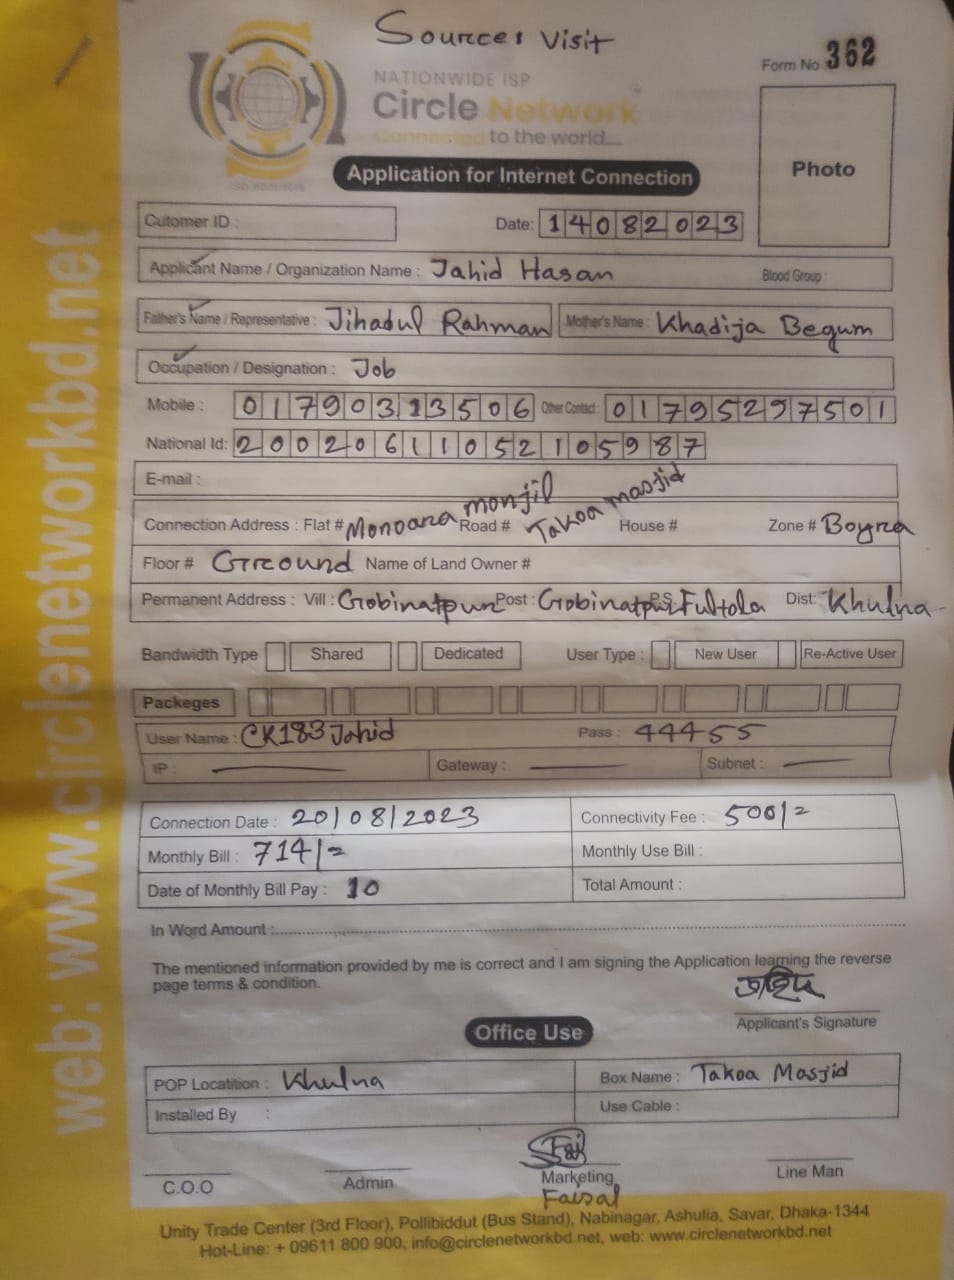 Sources Visit
Form No 362
NATIONWIDE ISP
Circle Network
Connected to the world....
Photo
Application for Internet Connection
Cutomer ID :
Date: 14082023
Applicant Name / Organization Name : Jahid Hasan Blood Group :
Father's Name / Representative : Jihadul Rahman Mother's Name : Khadija Begum
Occupation / Designation : Job
Mobile : 01790313506 Other Contact : 01795297501
National Id: 20020611052105987
E-mail :
Connection Address : Flat # Monoara monjil Road # Takoa masjid House # Zone # Boyra
Floor # Ground Name of Land Owner #
Permanent Address : Vill : Gobinatpur Post : Gobinatpur P.S Fultola Dist: Khulna
Bandwidth Type Shared Dedicated User Type : New User Re-Active User
Packeges
User Name : CK183Jahid Pass : 44455
IP : Gateway : Subnet :
Connection Date : 20/08/2023 Connectivity Fee : 500/=
Monthly Bill : 714/= Monthly Use Bill :
Date of Monthly Bill Pay : 10 Total Amount :
In Word Amount :
The mentioned information provided by me is correct and I am signing the Application learning the reverse
page terms & condition.
জাহিদ
Applicant's Signature
Office Use
POP Locatition : Khulna Box Name : Takoa Masjid
Installed By : Use Cable :
C.O.O Admin Marketing Line Man
Faisal
Unity Trade Center (3rd Floor), Pollibiddut (Bus Stand), Nabinagar, Ashulia, Savar, Dhaka-1344
Hot-Line: + 09611 800 900, info@circlenetworkbd.net, web: www.circlenetworkbd.net
web: www.circlenetworkbd.net